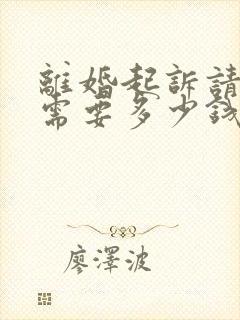 離婚起訴請
需要多少錢
廖澤波